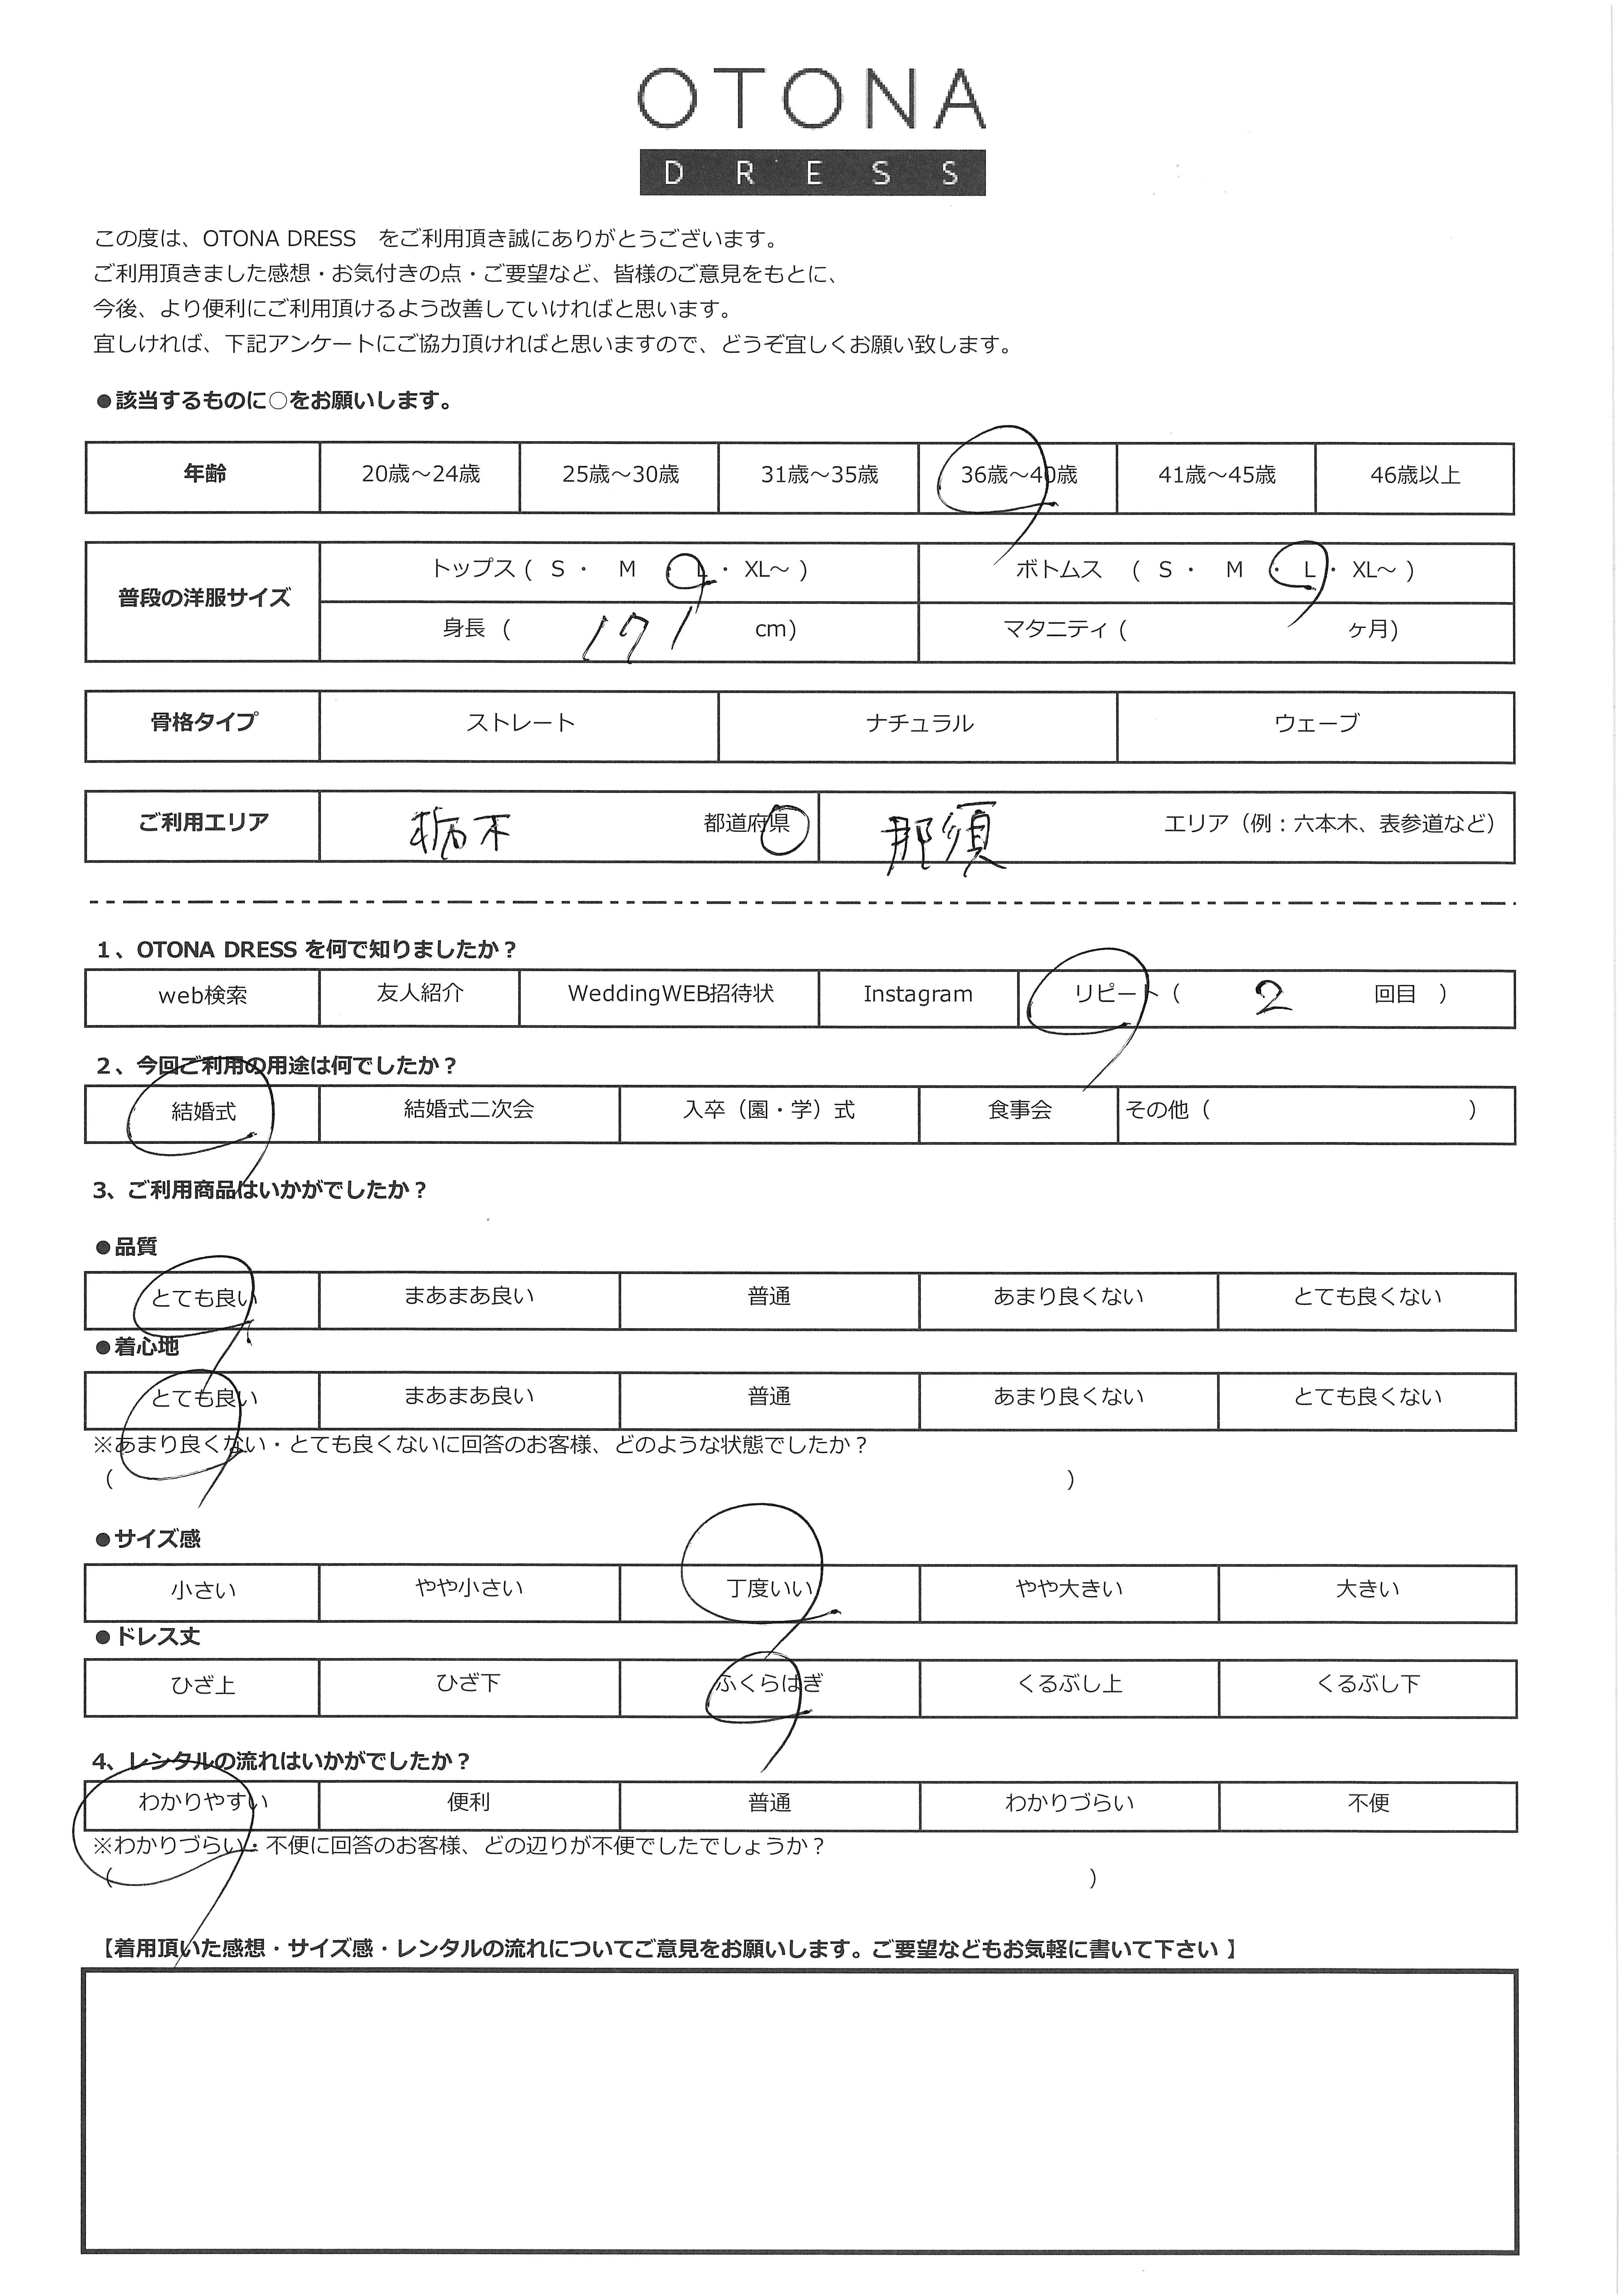 OTONA
DRESS
この度は、OTONA DRESS　をご利用頂き誠にありがとうございます。
ご利用頂きました感想・お気付きの点・ご要望など、皆様のご意見をもとに、
今後、より便利にご利用頂けるよう改善していければと思います。
宜しければ、下記アンケートにご協力頂ければと思いますので、どうぞ宜しくお願い致します。
●該当するものに○をお願いします。
年齢 20歳～24歳 25歳～30歳 31歳～35歳 36歳～40歳 41歳～45歳 46歳以上
普段の洋服サイズ トップス ( S ・ M ・ L ・ XL～ ) ボトムス ( S ・ M ・ L ・ XL～ )
身長 ( 171 cm) マタニティ ( ヶ月)
骨格タイプ ストレート ナチュラル ウェーブ
ご利用エリア 栃木 都道府県 那須 エリア（例：六本木、表参道など）
1、OTONA DRESS を何で知りましたか？
web検索 友人紹介 WeddingWEB招待状 Instagram リピート（ 2 回目 ）
2、今回ご利用の用途は何でしたか？
結婚式 結婚式二次会 入卒（園・学）式 食事会 その他（ ）
3、ご利用商品はいかがでしたか？
●品質
とても良い まあまあ良い 普通 あまり良くない とても良くない
●着心地
とても良い まあまあ良い 普通 あまり良くない とても良くない
※あまり良くない・とても良くないに回答のお客様、どのような状態でしたか？
（ ）
●サイズ感
小さい やや小さい 丁度いい やや大きい 大きい
●ドレス丈
ひざ上 ひざ下 ふくらはぎ くるぶし上 くるぶし下
4、レンタルの流れはいかがでしたか？
わかりやすい 便利 普通 わかりづらい 不便
※わかりづらい・不便に回答のお客様、どの辺りが不便でしたでしょうか？
（ ）
【着用頂いた感想・サイズ感・レンタルの流れについてご意見をお願いします。ご要望などもお気軽に書いて下さい 】